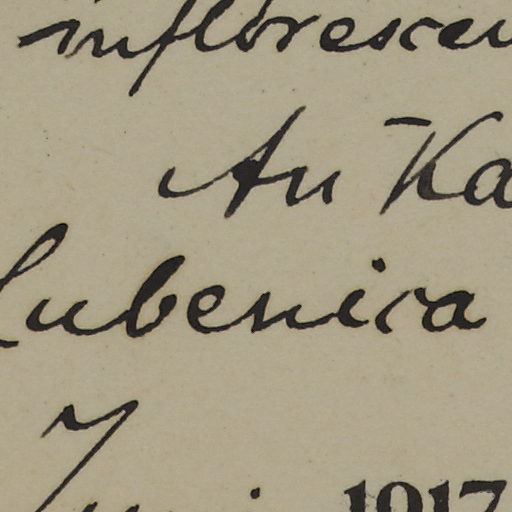 inflorescen
An Ka
Lubenica
Juni 1917